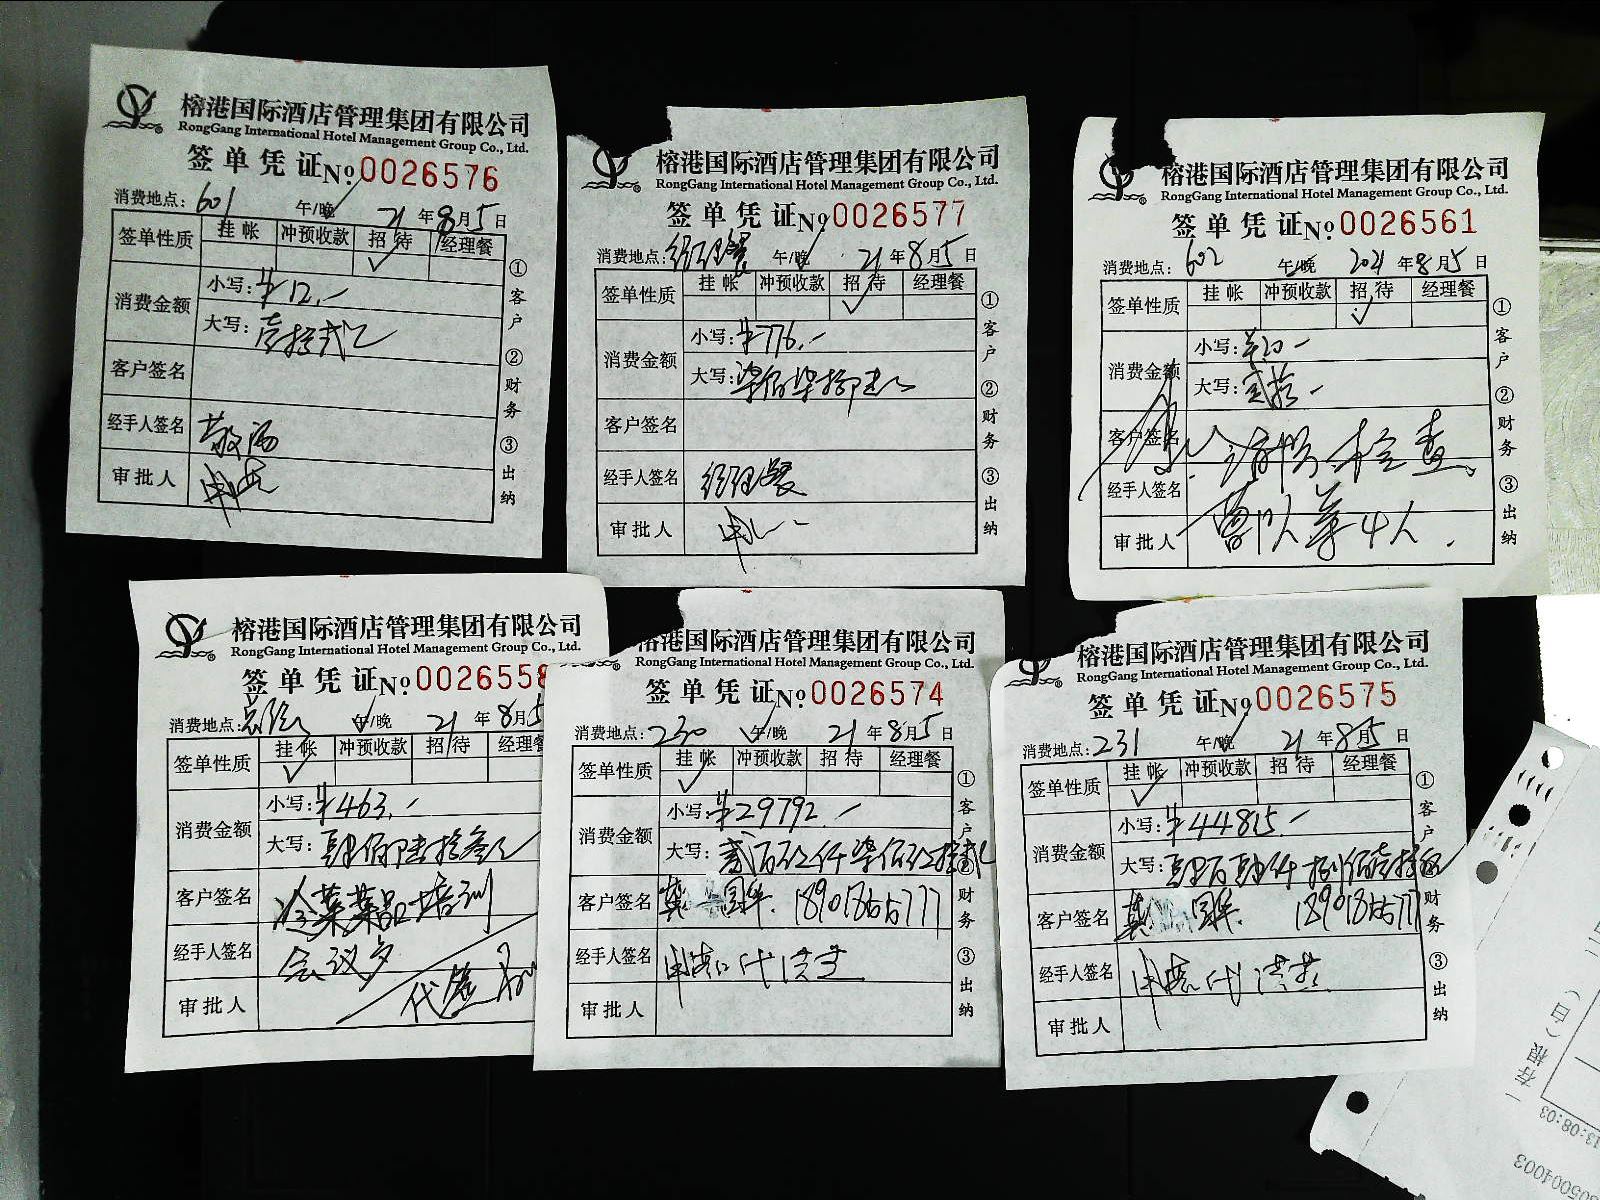 榕港国际酒店管理集团有限公司
RongGang International Hotel Management Group Co., Ltd.
签单凭证№0026576
消费地点：601 午/晚 21年8月5日
签单性质 挂帐 冲预收款 招待 经理餐
消费金额 小写：¥12.-
大写：壹拾贰元
客户签名
经手人签名
审批人
①客户 ②财务 ③出纳
榕港国际酒店管理集团有限公司
RongGang International Hotel Management Group Co., Ltd.
签单凭证№0026577
消费地点：经理餐 午/晚 21年8月5日
签单性质 挂帐 冲预收款 招待 经理餐
消费金额 小写：¥776.-
大写：柒佰柒拾陆元
客户签名
经手人签名 经理餐
审批人
①客户 ②财务 ③出纳
榕港国际酒店管理集团有限公司
RongGang International Hotel Management Group Co., Ltd.
签单凭证№0026561
消费地点：602 午/晚 2021年8月5日
签单性质 挂帐 冲预收款 招待 经理餐
消费金额 小写：¥20-
大写：贰拾-
客户签名 检查
经手人签名
审批人 4人
①客户 ②财务 ③出纳
榕港国际酒店管理集团有限公司
RongGang International Hotel Management Group Co., Ltd.
签单凭证№0026558
消费地点： 午/晚 21年8月5
签单性质 挂帐 冲预收款 招待 经理餐
消费金额 小写：¥463.-
大写：肆佰陆拾叁元
客户签名 冷菜菜品培训
经手人签名 会议
审批人 代签
榕港国际酒店管理集团有限公司
RongGang International Hotel Management Group Co., Ltd.
签单凭证№0026574
消费地点：230 午/晚 21年8月5日
签单性质 挂帐 冲预收款 招待 经理餐
消费金额 小写：¥29792.-
大写：贰万玖仟柒佰玖拾贰元
客户签名 龚国华
经手人签名
审批人
①客户 ②财务 ③出纳
榕港国际酒店管理集团有限公司
RongGang International Hotel Management Group Co., Ltd.
签单凭证№0026575
消费地点：231 午/晚 21年8月5日
签单性质 挂帐 冲预收款 招待 经理餐
消费金额 小写：¥44815.-
大写：肆万肆仟捌佰壹拾伍
客户签名 龚国华
经手人签名
审批人
①客户 ②财务 ③出纳
一存根（白）
13:08:03